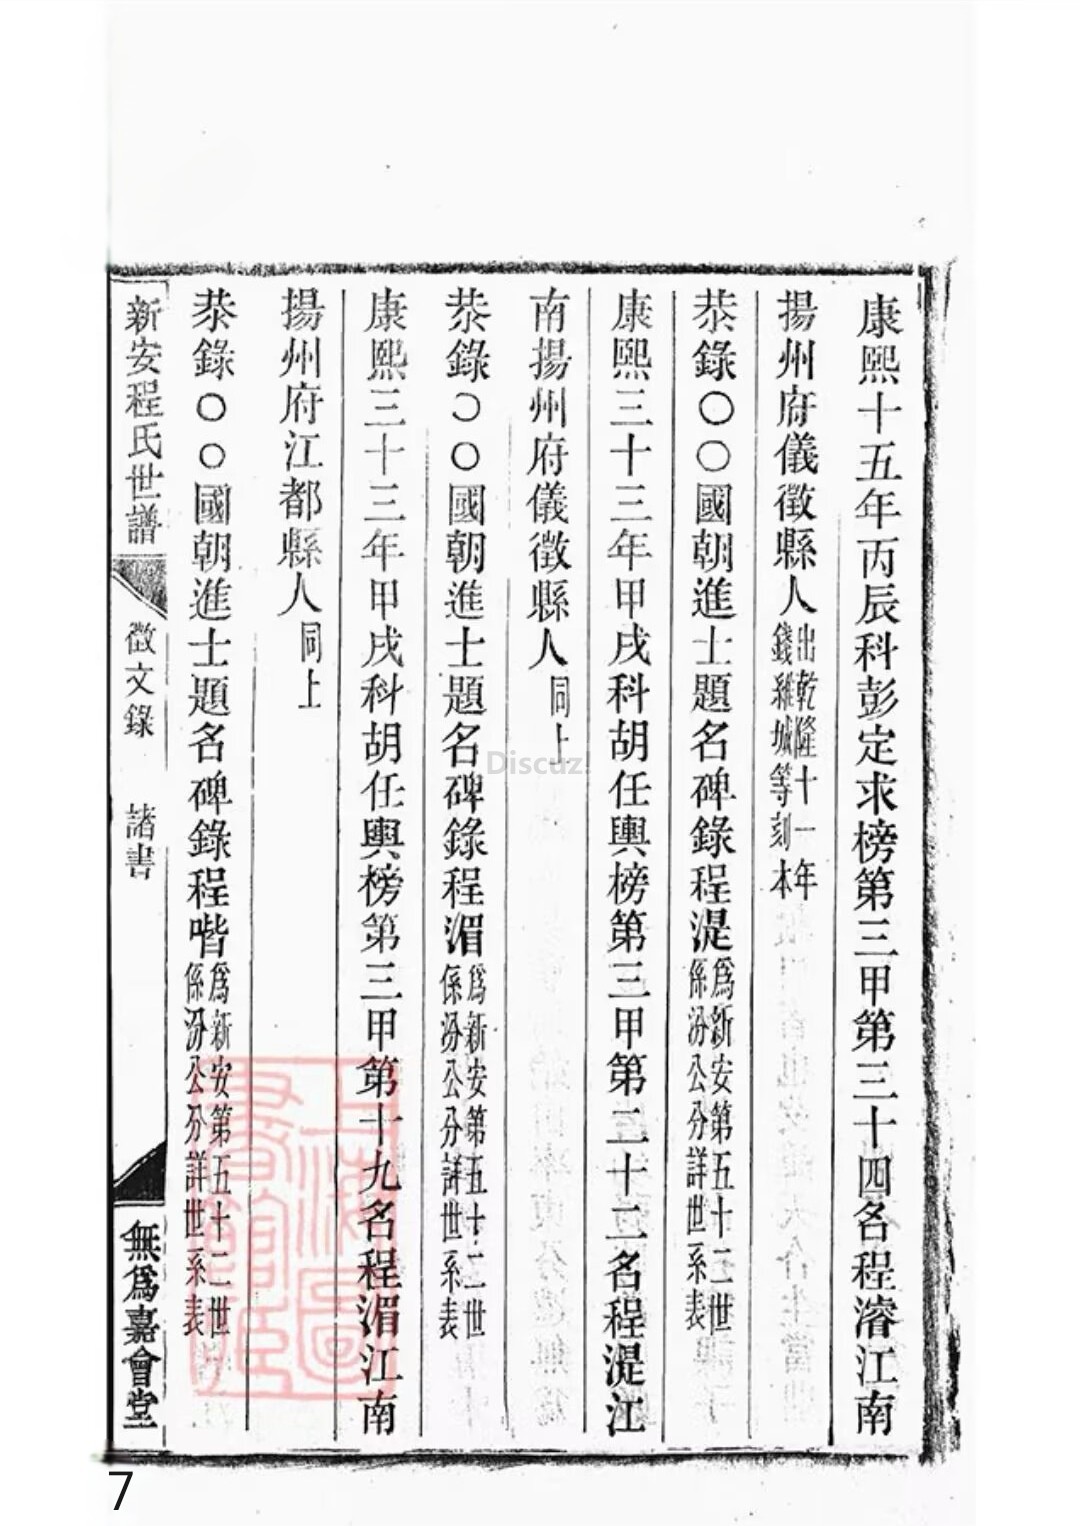 康熙十五年丙辰科彭定求榜第三甲第三十四名程濬江南
揚州府儀徵縣人出乾隆十一年錢維城等刻本
恭錄〇〇國朝進士題名碑錄程湜爲新安第五十二世係汾公分詳世系表
康熙三十三年甲戌科胡任輿榜第三甲第二十二名程湜江
南揚州府儀徵縣人同上
恭錄〇〇國朝進士題名碑錄程湄爲新安第五十二世係汾公分詳世系表
康熙三十三年甲戌科胡任輿榜第三甲第十九名程湄江南
揚州府江都縣人同上
恭錄〇〇國朝進士題名碑錄程喈爲新安第五十二世係汾公分詳世系表
新安程氏世譜 徵文錄 諸書 無爲嘉會堂
上海圖書館藏
Discuz!
7